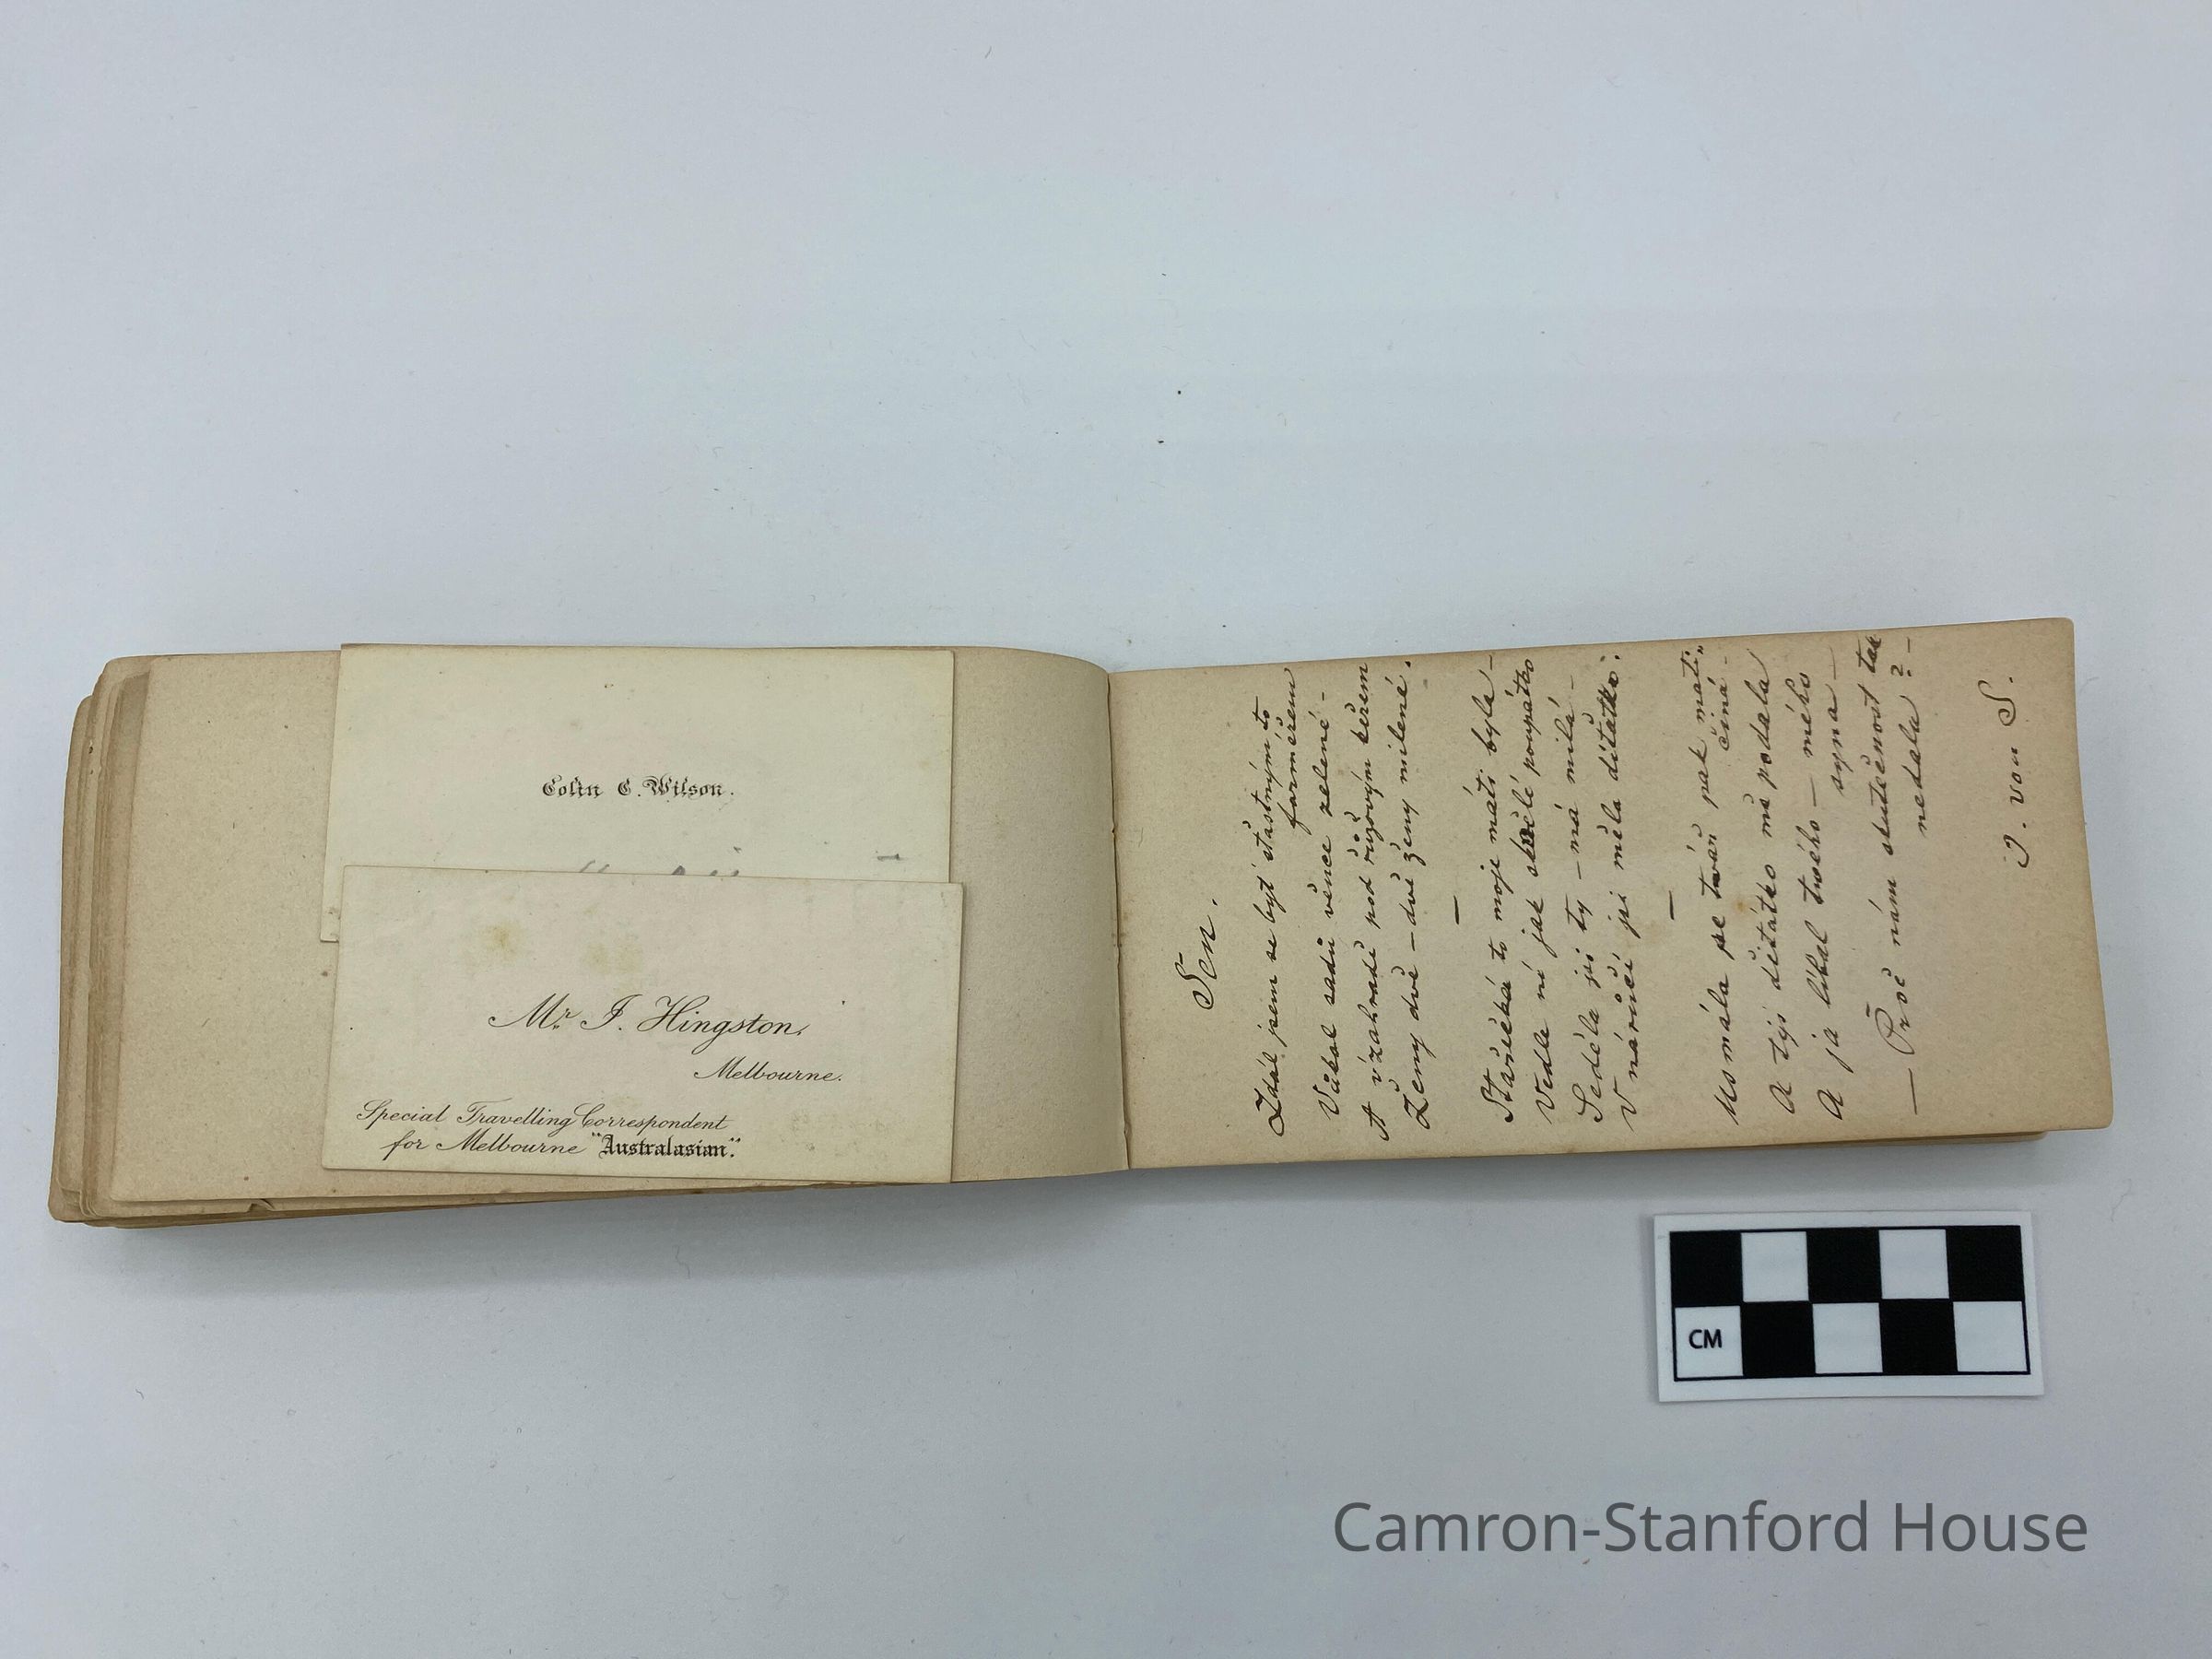 Colin C. Wilson.
Mr. J. Hingston,
Melbourne.
Special Travelling Correspondent
for Melbourne "Australasian".
Sen.
Zdál jsem se být šťastným to
farmářem
Vůkol sadů věnce zelené –
A v zahradě pod růžovým keřem
Ženy dvě – dvě ženy milené.
—
Stařičká to moje máti byla –
Vedle ní jak poupátko
Seděla jsi ty – má milá –
V náručí jsi měla dítátko.
—
Usmála se tvář pak mati-
čina –
A tys dítátko mě podala
A já líbal tvého – mého
syna –
— Proč nám skutečnost tak
nedala? –
J. von S.
CM
Camron-Stanford House